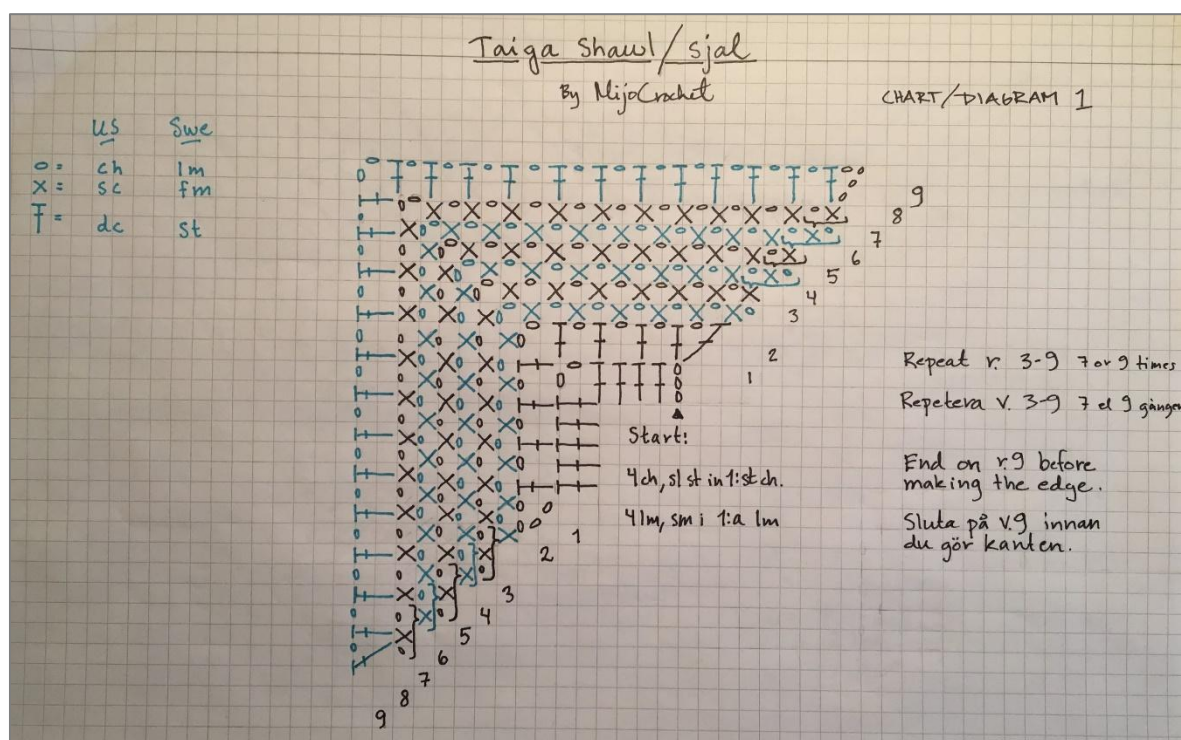 Taiga Shawl/sjal
By MijoCrochet
CHART/DIAGRAM 1
US Swe
o = ch lm
X = sc fm
Ŧ = dc st
9
8
7
6
5
4
3
2
1
Repeat r. 3-9 7 or 9 times
Repetera v. 3-9 7 el 9 gånger
Start:
4ch, sl st in 1:st ch.
4lm, sm i 1:a lm
End on r.9 before
making the edge.
Sluta på v.9 innan
du gör kanten.
1
2
3
4
5
6
7
8
9